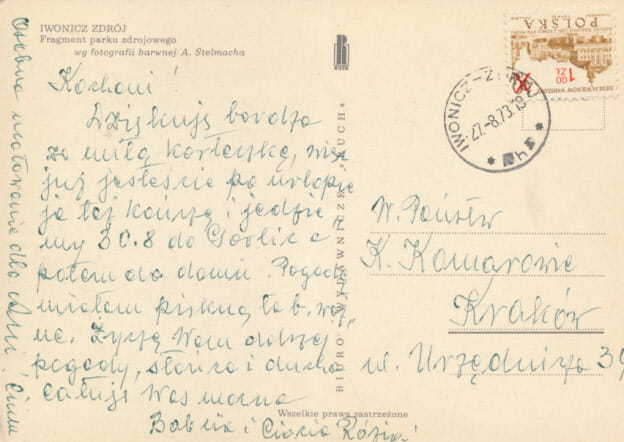 IWONICZ ZDRÓJ
Fragment parku zdrojowego
wg fotografii barwnej A. Stelmacha
Kochani!
Dziękuję bardzo
za miłą karteczkę, więc
już jesteście po urlopie
ja też kończę i jedzie
my 30.8 do Gorlic a
potem do domu. Pogodę
miałam piękną to b. waż
ne. Życzę Wam dalszej
pogody, słońca i ducha
całuję Was mocno
Babcia i Ciocia
Osobne ucałowanie dla Ani!
BIURO WYDAWNICZE „RUCH”
Wszelkie prawa zastrzeżone
POLSKA
1 ZŁ
IWONICZ-ZDRÓJ
27.-8.73.19
W. Państwo
K. Komarowie
Kraków
ul. Urzędnicza